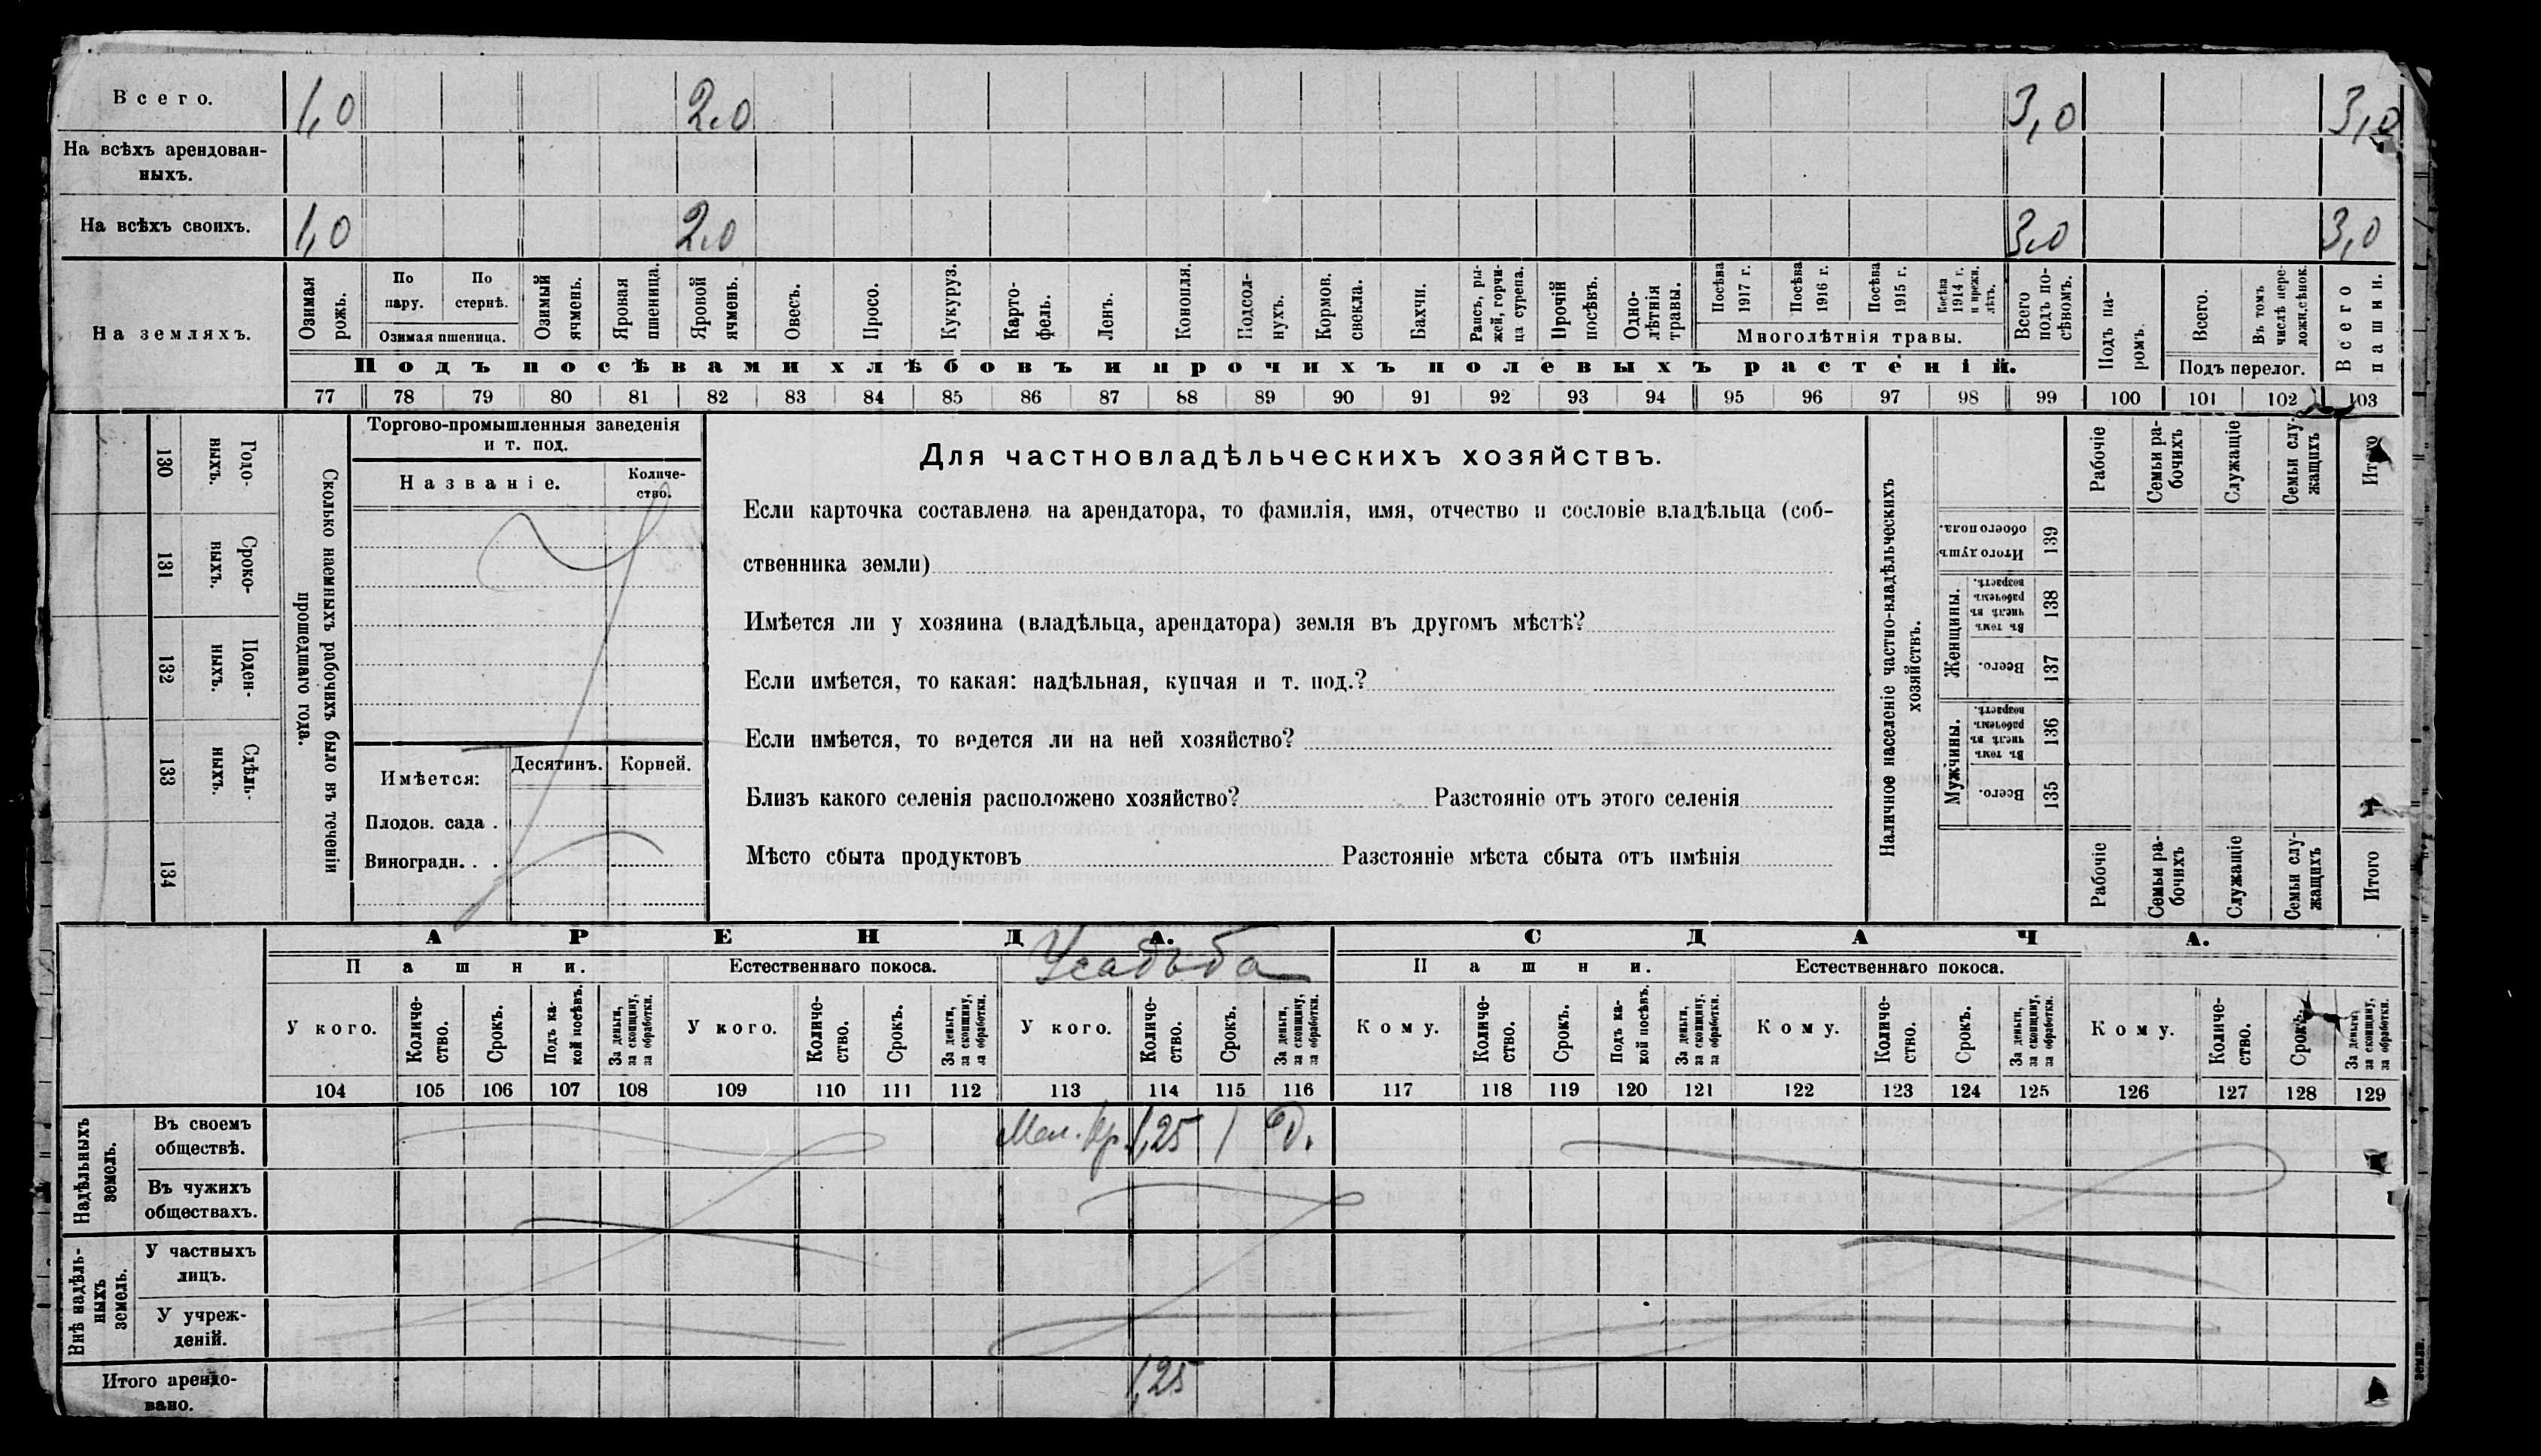 Всего. 1,0 2.0 3,0 3,0
На всѣхъ арендован-
ныхъ.
На всѣхъ своихъ. 1,0 2.0 3.0 3,0
На земляхъ.
Озимая
рожь.
По
пару.
По
стернѣ.
Озимая пшеница.
Озимый
ячмень.
Яровая
пшеница.
Яровой
ячмень.
Овесъ.
Просо.
Кукуруз.
Карто-
фель.
Ленъ.
Конопля.
Подсол-
нухъ.
Кормов.
свекла.
Бахчи.
Рапсъ, ры-
жей, горчи-
ца сурепа.
Прочій
посѣвъ.
Одно-
лѣтнія
травы.
Посѣва
1917 г.
Посѣва
1916 г.
Посѣва
1915 г.
Посѣва
1914 г.
и прежн.
лѣтъ.
Многолѣтнія травы.
Всего
подъ по-
сѣвомъ.
Подъ па-
ромъ.
Всего.
Въ томъ
числѣ пере-
ложн.сѣнок.
Подъ перелог.
Всего
пашни.
Подъ посѣвами хлѣбовъ и прочихъ полевыхъ растеній.
77 78 79 80 81 82 83 84 85 86 87 88 89 90 91 92 93 94 95 96 97 98 99 100 101 102 103
130 Годо-
ныхъ.
131 Сроко-
ныхъ.
132 Поден-
ныхъ.
133 Сдѣль-
ныхъ.
134
Сколько наемныхъ рабочихъ было въ теченіи
прошедшаго года.
Торгово-промышленныя заведенія
и т. под.
Названіе.
Количе-
ство.
Имѣется:
Десятинъ. Корней.
Плодов. сада .
Виноградн. . .
Для частновладѣльческихъ хозяйствъ.
Если карточка составлена на арендатора, то фамилія, имя, отчество и сословіе владѣльца (соб-
ственника земли)
Имѣется ли у хозяина (владѣльца, арендатора) земля въ другомъ мѣстѣ?
Если имѣется, то какая: надѣльная, купчая и т. под.?
Если имѣется, то ведется ли на ней хозяйство?
Близъ какого селенія расположено хозяйство? Разстояніе отъ этого селенія
Мѣсто сбыта продуктовъ Разстояніе мѣста сбыта отъ имѣнія
Наличное населеніе частно-владѣльческихъ
хозяйствъ.
Рабочіе
Семьи ра-
бочихъ
Служащіе
Семьи слу-
жащихъ
Итого
Итого душъ
обоего пола.
139
Женщины.
Въ томъ
числѣ въ
рабочемъ
возрастѣ.
138
Всего.
137
Мужчины.
Въ томъ
числѣ въ
рабочемъ
возрастѣ.
136
Всего.
135
Рабочіе
Семьи ра-
бочихъ
Служащіе
Семьи слу-
жащихъ
Итого
АРЕНДА. СДАЧА.
Пашни. Естественнаго покоса. Усадьба Пашни. Естественнаго покоса.
У кого.
Количе-
ство.
Срокъ.
Подъ ка-
кой посѣвъ.
За деньги,
за скопщину,
за обработки.
У кого.
Количе-
ство.
Срокъ.
За деньги,
за скопщину,
за обработки.
У кого.
Количе-
ство.
Срокъ.
За деньги,
за скопщину,
за обработки.
Кому.
Количе-
ство.
Срокъ.
Подъ ка-
кой посѣвъ.
За деньги,
за скопщину,
за обработки.
Кому.
Количе-
ство.
Срокъ.
За деньги,
за скопщину,
за обработки.
Кому.
Количе-
ство.
Срокъ.
За деньги,
за скопщину,
за обработки.
104 105 106 107 108 109 110 111 112 113 114 115 116 117 118 119 120 121 122 123 124 125 126 127 128 129
Надѣльныхъ
земель.
Въ своемъ
обществѣ.
1,25 1 Д.
Въ чужихъ
обществахъ.
Внѣ надѣль-
ныхъ
земель.
У частныхъ
лицъ.
У учреж-
деній.
Итого арендо-
вано.
1,25